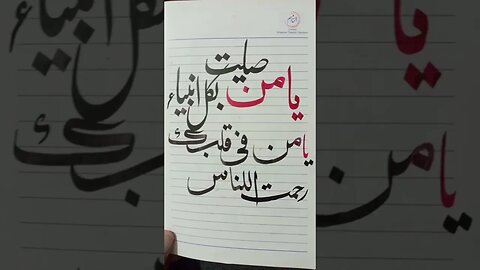 يا من صليت بكل انبياء
يا من فی قلبك
رحمت اللناس